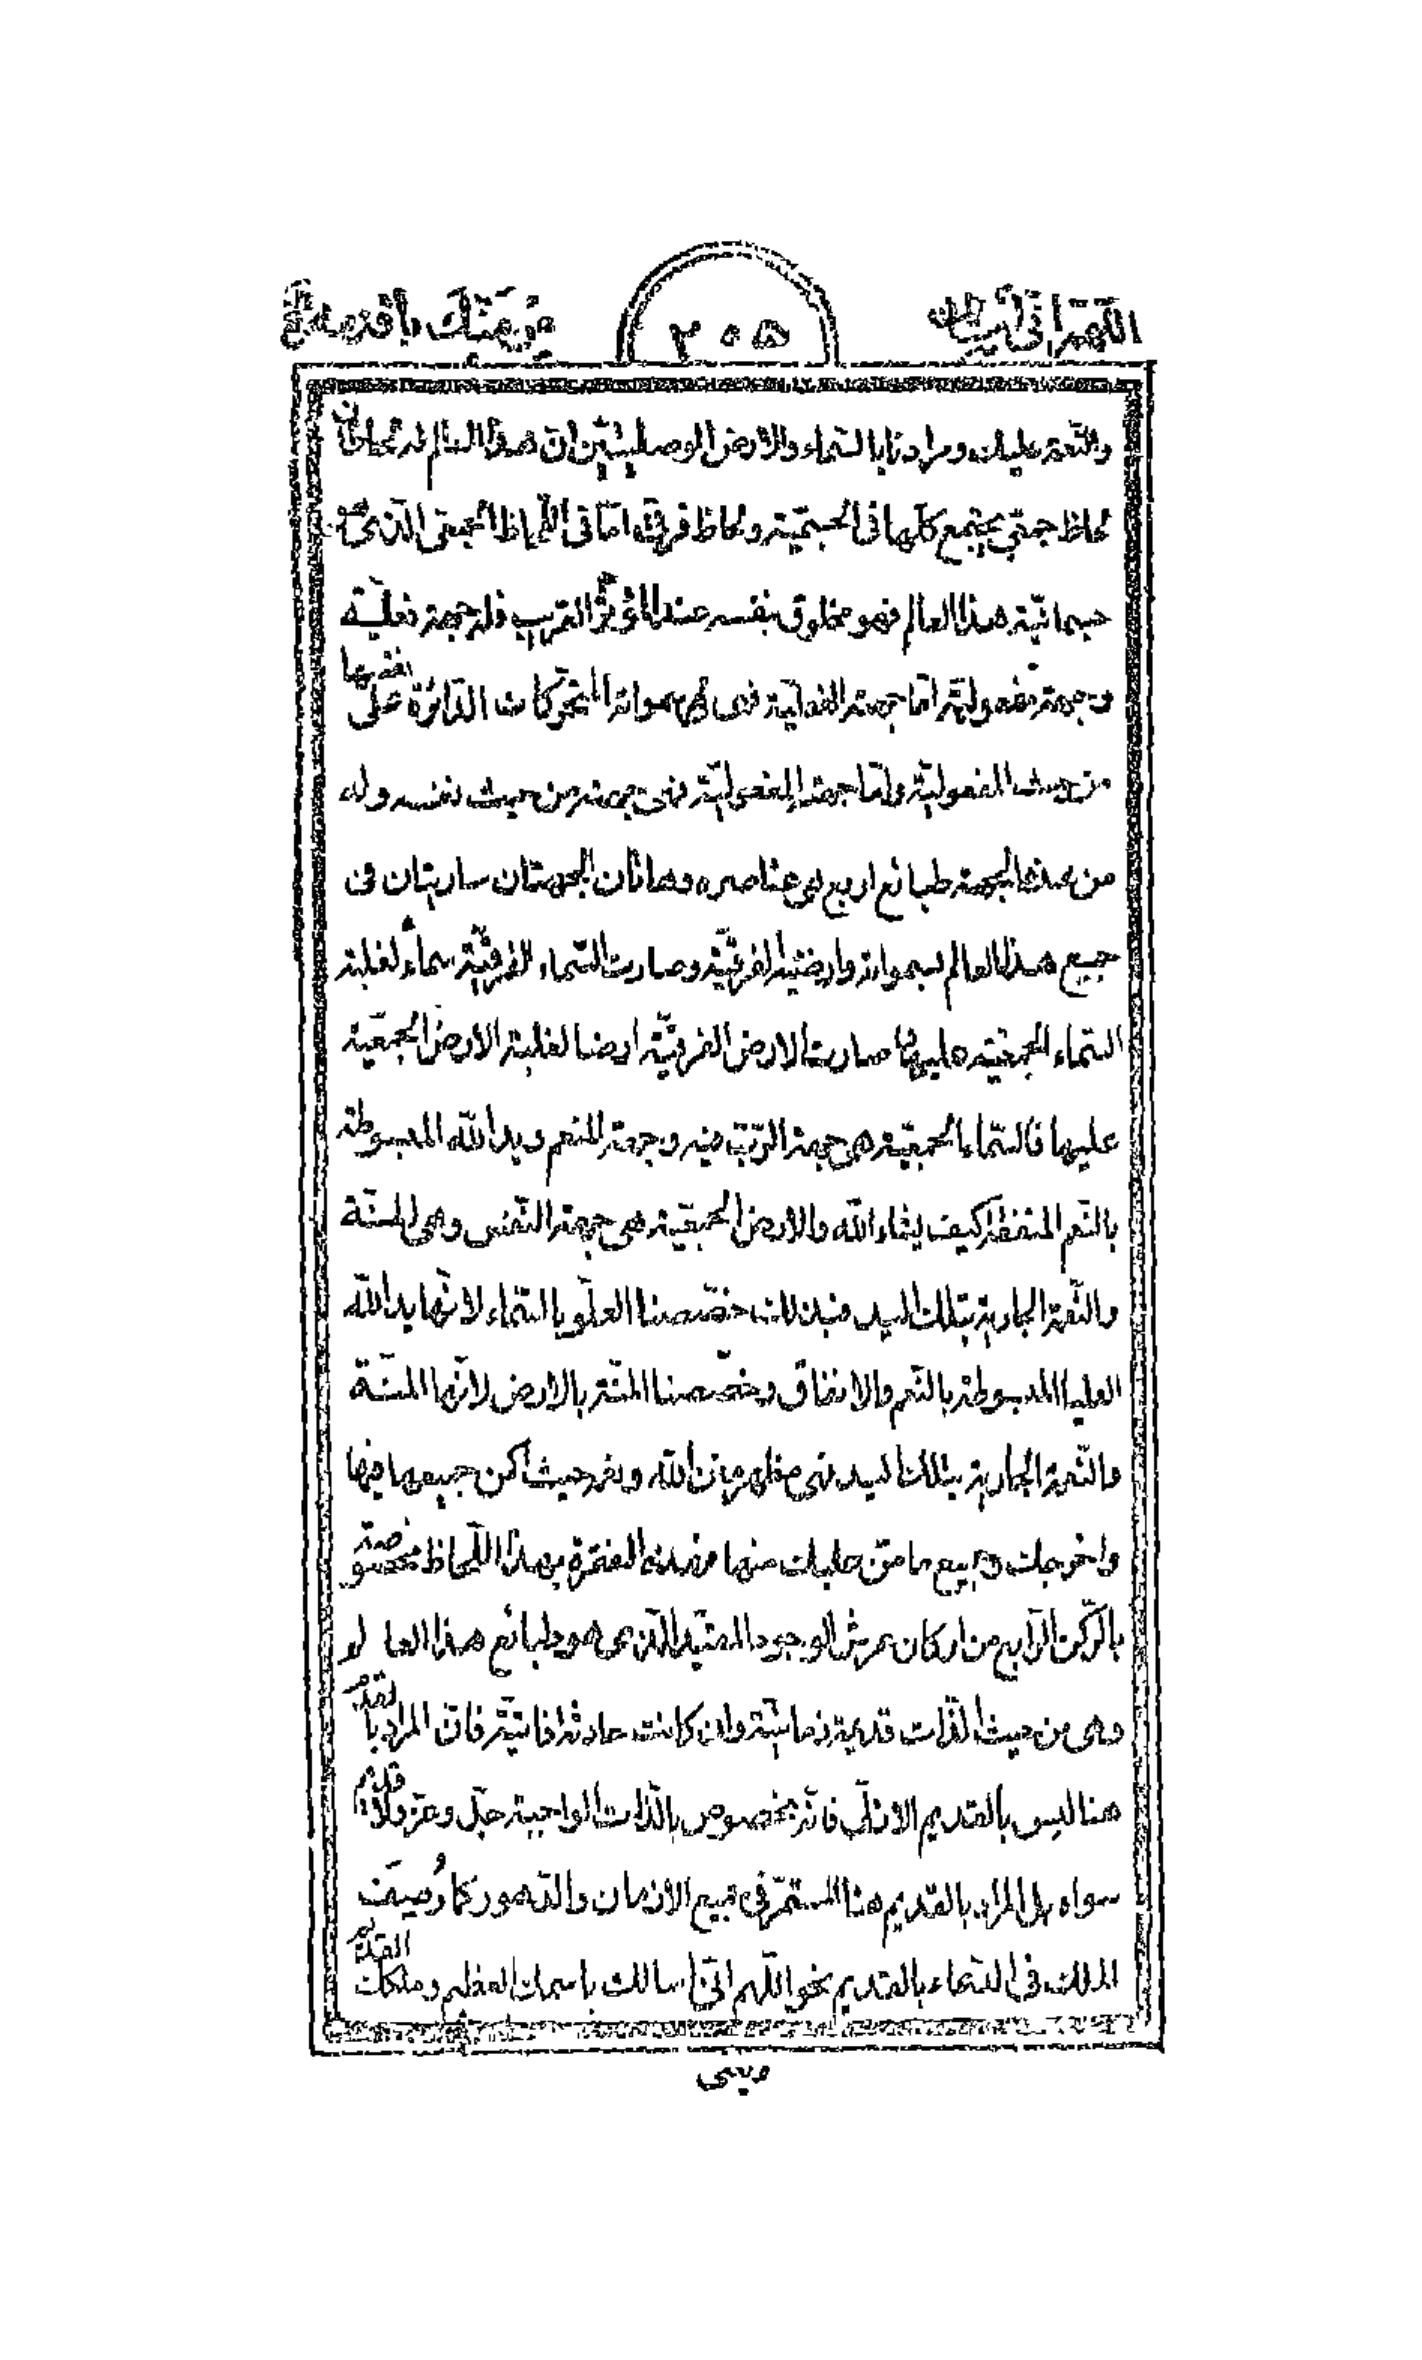 اللّهمّ انّى اسئلك
٢٠٥
من منّك باقدمه
والنّعمة عليك ومرادنا بالسّماء والارض الوصليتين ان هذا العالم له لحاظان
لحاظ جمعى يجتمع كلّها فى الجسميّة ولحاظ فرقى امّا فى اللّحاظ الجمعى الّذى
جسمانيّة هذا العالم فهو مخلوق بنفسه عند المؤثّر القريب فله جهة فعليّة
وجهة مفعوليّة امّا جهة الفعليّة فهى سمواته المتحرّكات الدّائرة على نفسها
من حيث المفعوليّة وامّا جهة المفعوليّة فهى جهته من حيث نفسه وله
من هذه الجهة طبائع اربع هى عناصره وهاتان الجهتان ساريتان فى
جميع هذا العالم بسمواته وارضيه الفرقيّة وصارت السّماء الفرقيّة سماءً لغلبة
السّماء الجمعيّة عليها صارت الارض الفرقيّة ارضا لغلبة الارض الجمعيّة
عليها فالسّماء الجمعيّة هى جهة الرّب فيه وجهة المنعم ويد الله المبسوطة
بالنّعم المنفقة كيف يشاء الله والارض الجمعيّة هى جهة النّفس وهى المنّة
والنّعمة الجارية بتلك اليد فبذلك خصّصنا العلو بالسّماء لانّها يد الله
العليا المبسوطة بالنّعم والانفاق وخصّصنا المنّة بالارض لانّها المنّة
والنّعمة الجارية بتلك اليد فهى مظهر منن الله ونعمه حيث اكمن جميعها فيها
واخرجت جميع ما منّ عليك منها فهذه الفقرة بهذا اللّحاظ مخصوصة
بالرّكن الرّابع من اركان عرش الوجود المقيّد الّذى هو طبائع هذا العالم
وهى من حيث الذّات قديمة زمانيّة وان كانت حادثة فانية فانّ المراد بالقديم
هنا ليس بالقديم الازلّى فانّه مخصوص بالذّات الواجبة جلّ وعزّ ولا قديم
سواه بل المراد بالقديم هنا المستمرّ فى جميع الازمان والدّهور كما وُصِفَ
الملك فى الدّعاء بالقديم نحو اللّهم انّى اسالك باسمك العظيم وملكك القديم